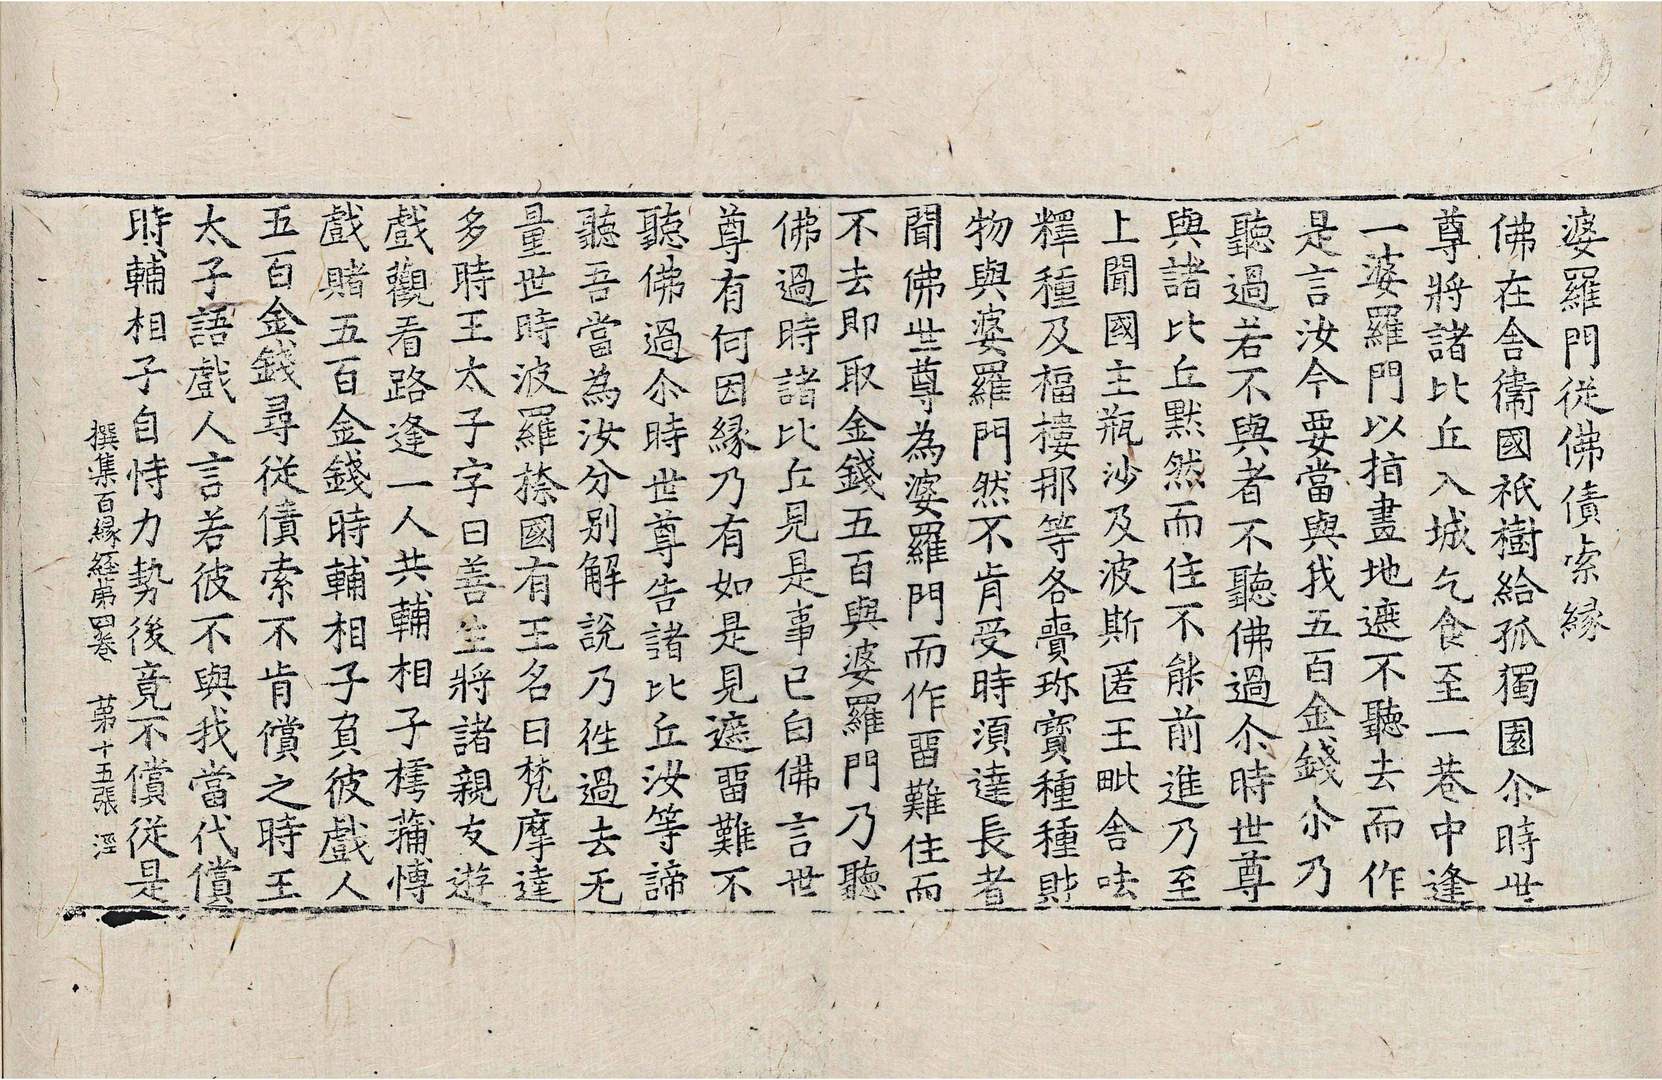 婆羅門從佛債索縁
佛在舍衞國祇樹給孤獨園尒時世
尊將諸比丘入城乞食至一巷中逢
一婆羅門以指畫地遮不聽去而作
是言汝今要當與我五百金錢尒乃
聽過若不與者不聽佛過尒時世尊
與諸比丘默然而住不能前進乃至
上聞國主瓶沙及波斯匿王毗舍呿
釋種及福樓那等各賷珎寶種種財
物與婆羅門然不肯受時湏達長者
聞佛世尊為婆羅門而作畱難住而
不去即取金錢五百與婆羅門乃聽
佛過時諸比丘見是事已白佛言世
尊有何因縁乃有如是見遮畱難不
聽佛過尒時世尊告諸比丘汝等諦
聽吾當為汝分別解說乃徃過去无
量世時波羅㮈國有王名曰梵摩達
多時王太子字曰善生將諸親友遊
戲觀看路逢一人共輔相子樗蒱愽
戲賭五百金錢時輔相子負彼戲人
五百金錢尋從債索不肯償之時王
太子語戲人言若彼不與我當代償
時輔相子自恃力勢後竟不償從是
撰集百縁経苐四卷 苐十五張 涇